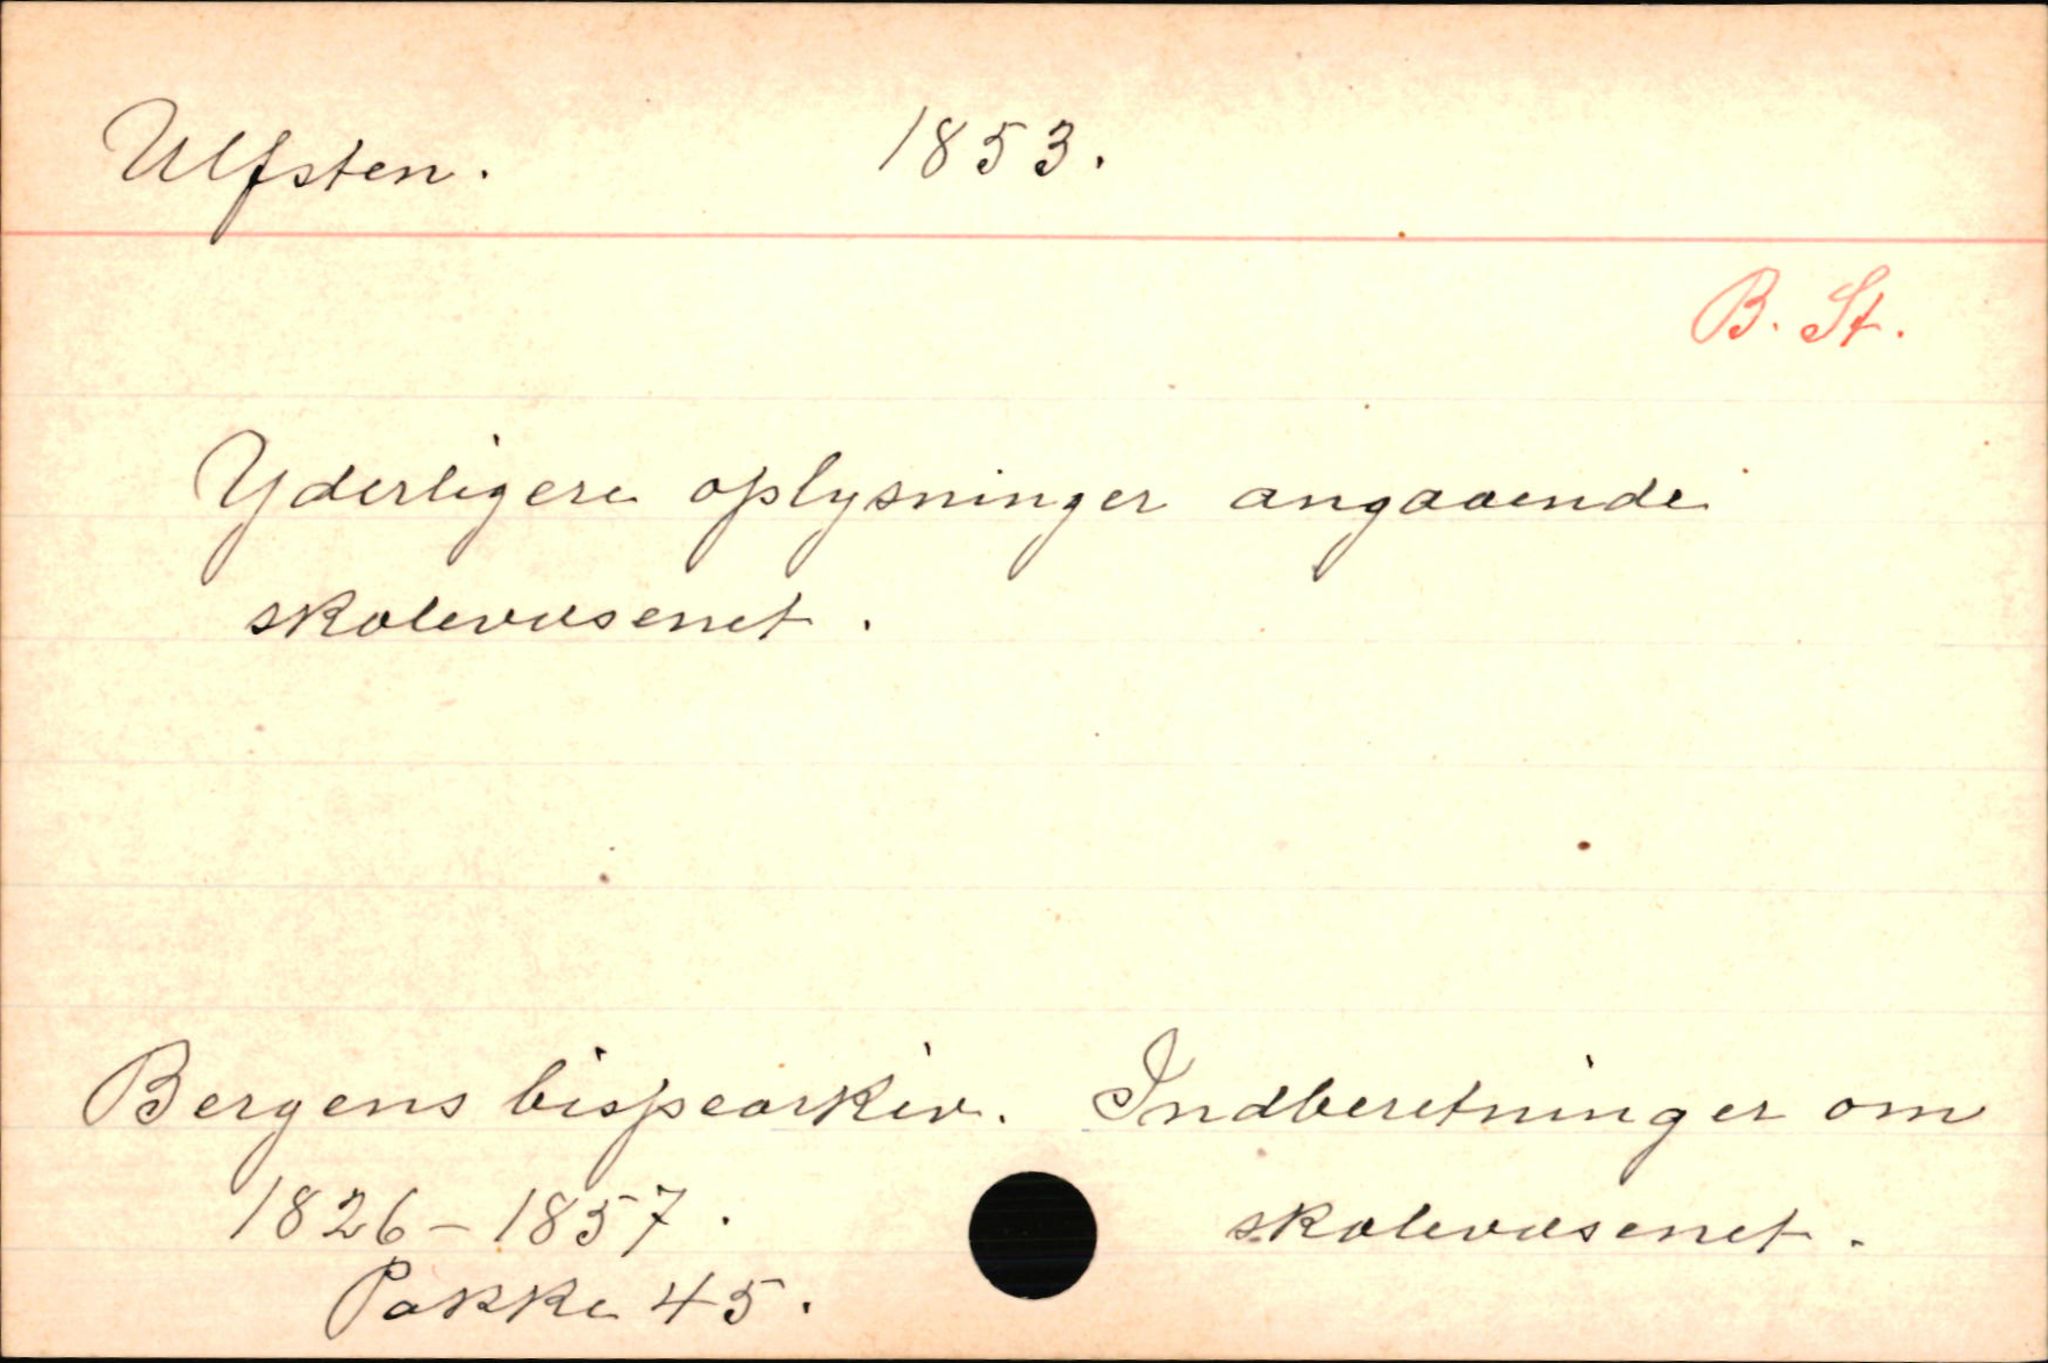 Ulfsten. 1853.
B. St.
Yderligere oplysninger angaaende
skolevæsenet.
Bergens bispearkiv. Indberetninger om
1826-1857. skolevæsenet.
Pakke 45.